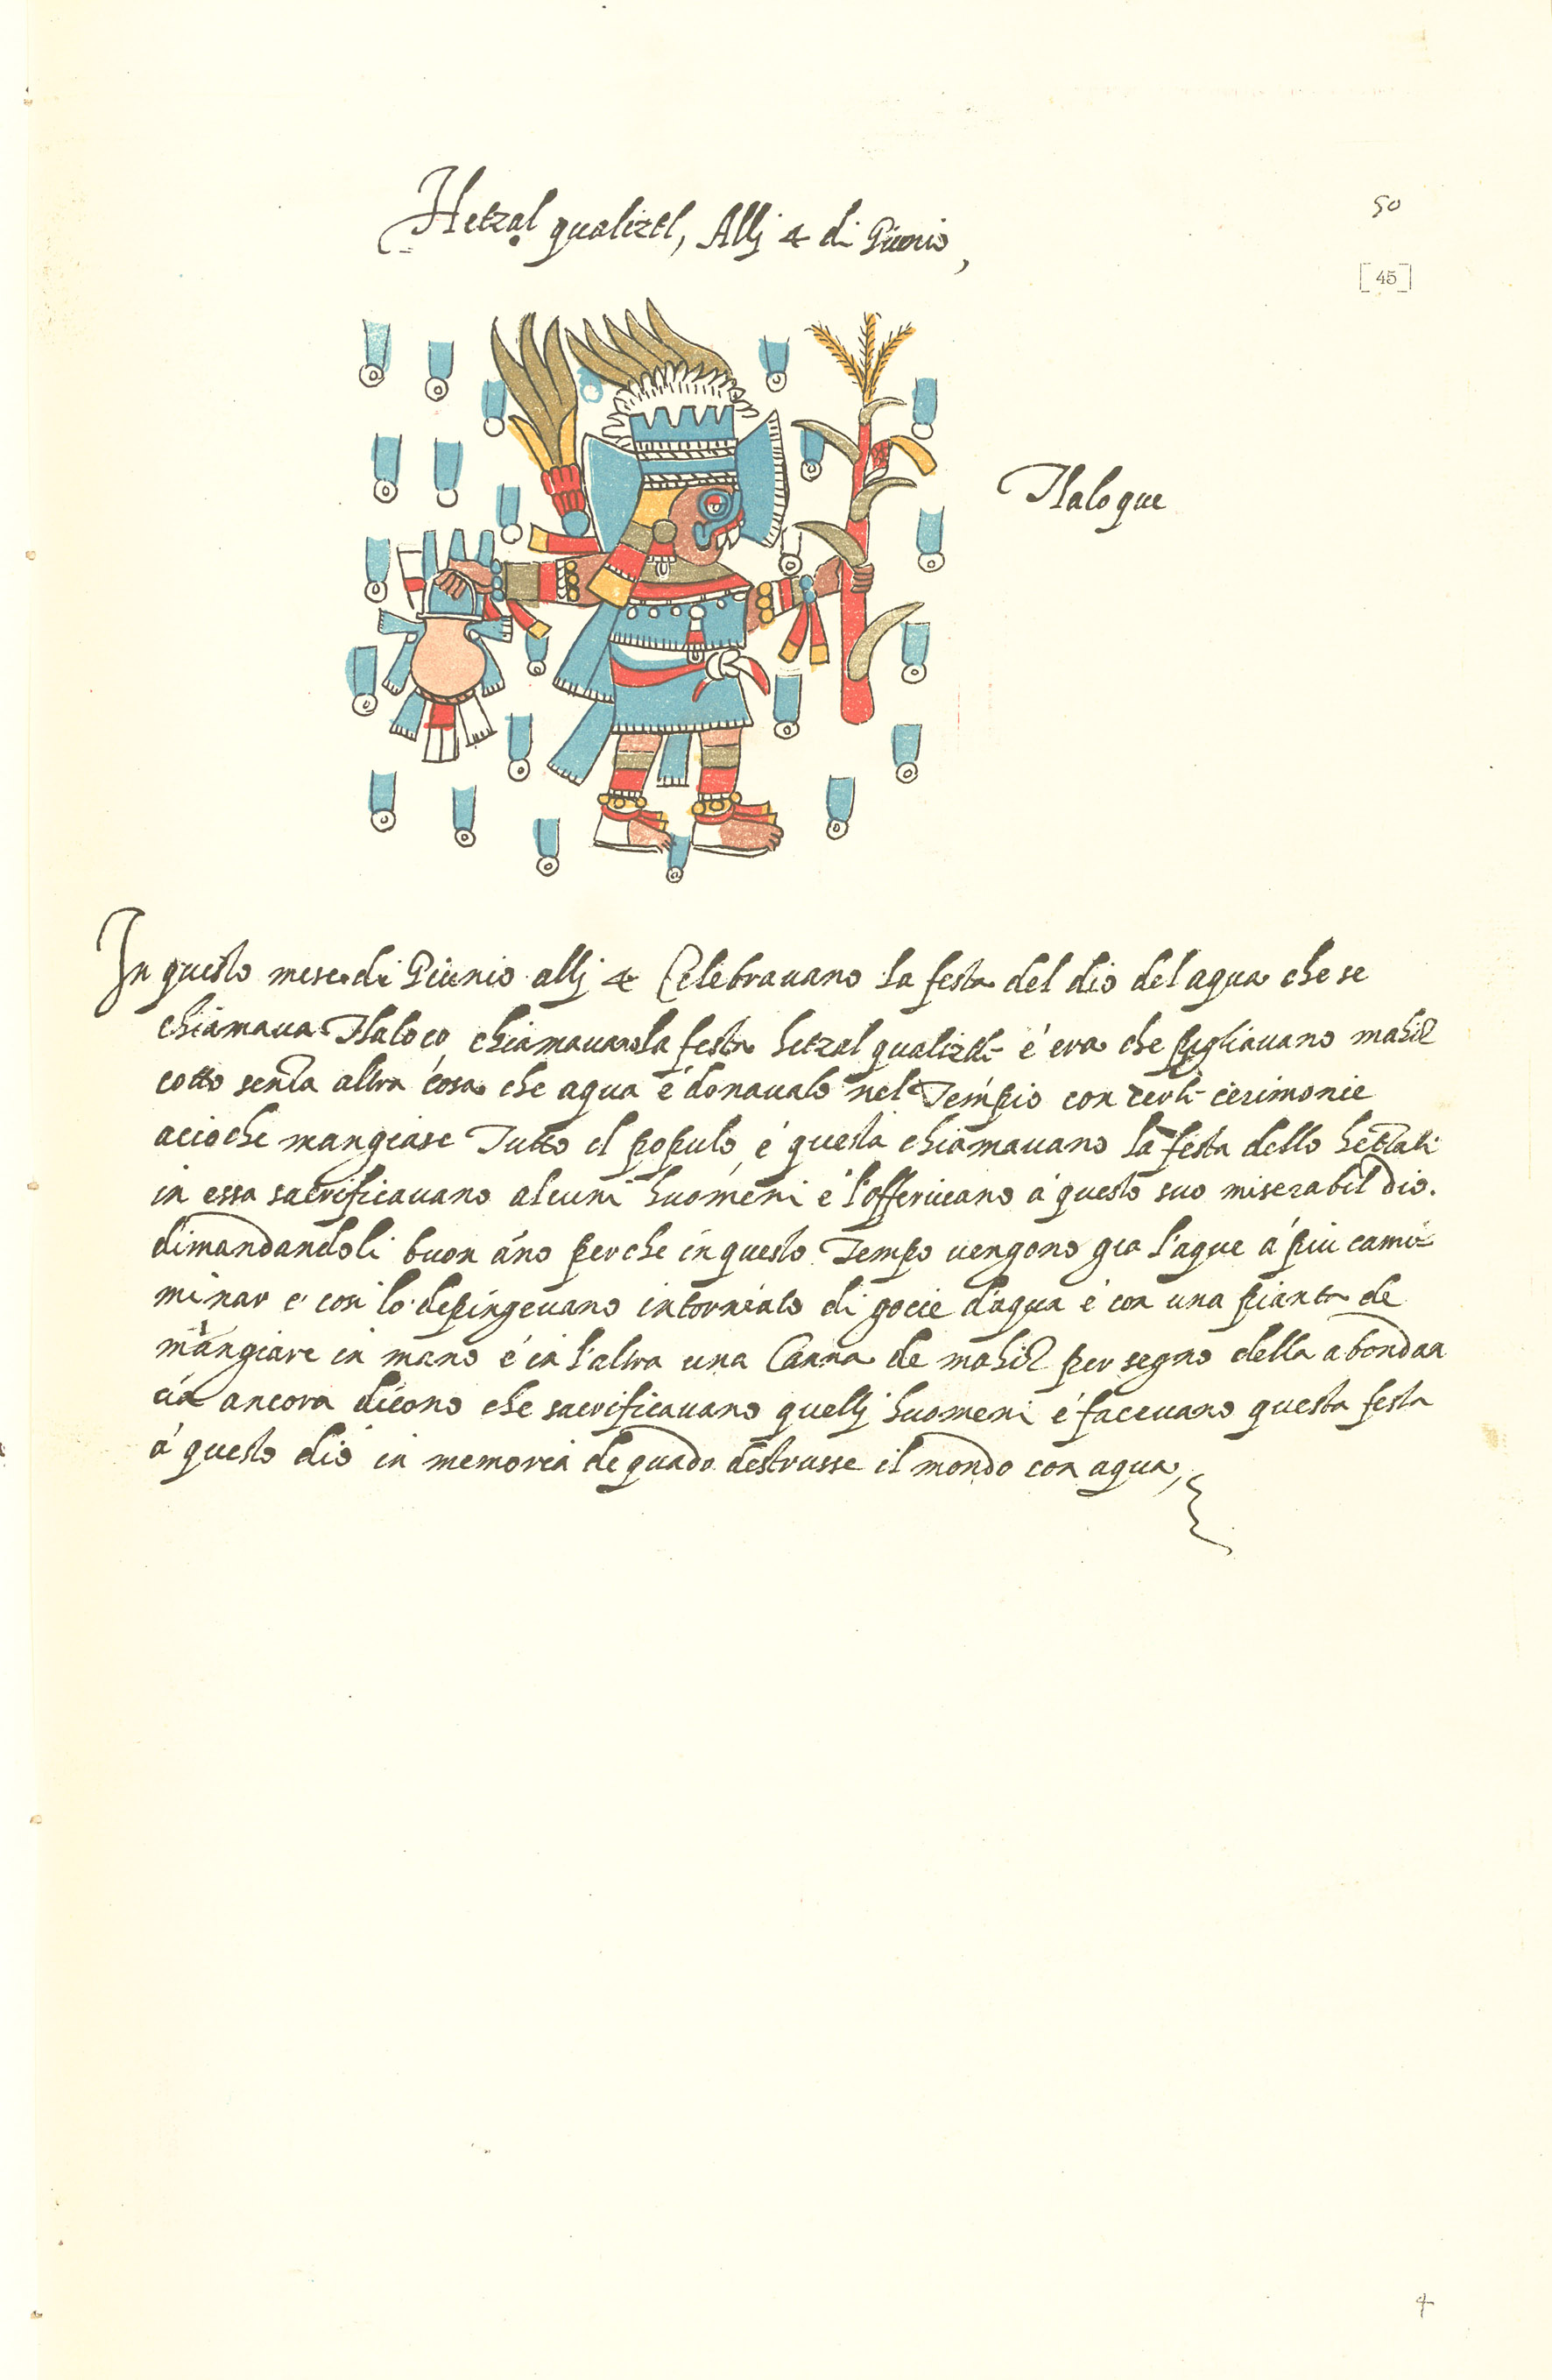 Hetzal qualiztl, Allj 4 di Giunio,
50
[45]
Tlaloque
In questo mese di Giunio allj 4 Celebrauano la festa del dio del agua che se
chiamaua Tlaloco, chiamauano la festa hetzal qualiztli é era che pigliauano mahiz
cotto senza altra cosa che agua é donaualo nel Tempio con certi cerimonie
acioche mangiase Tutto el populo, é questa chiamauano la festa dello hetzali
in essa sacrificauano alcuni huomeni é l'offeriueano á questo suo miserabil dio.
dimandandoli buon áno perche in questo Tempo uengono gia l'aque á piu cami
minar é cosi lo depingeuano intorniato di gocie d'agua é con una pianta de
mangiare in mano é in l'altra una Canna de mahiz per segno della abondan
cia ancora dicono che sacrificauano quellj huomeni é faceuano questa festa
á questo dio in memoria de quado destrusse il mondo con agua,
4